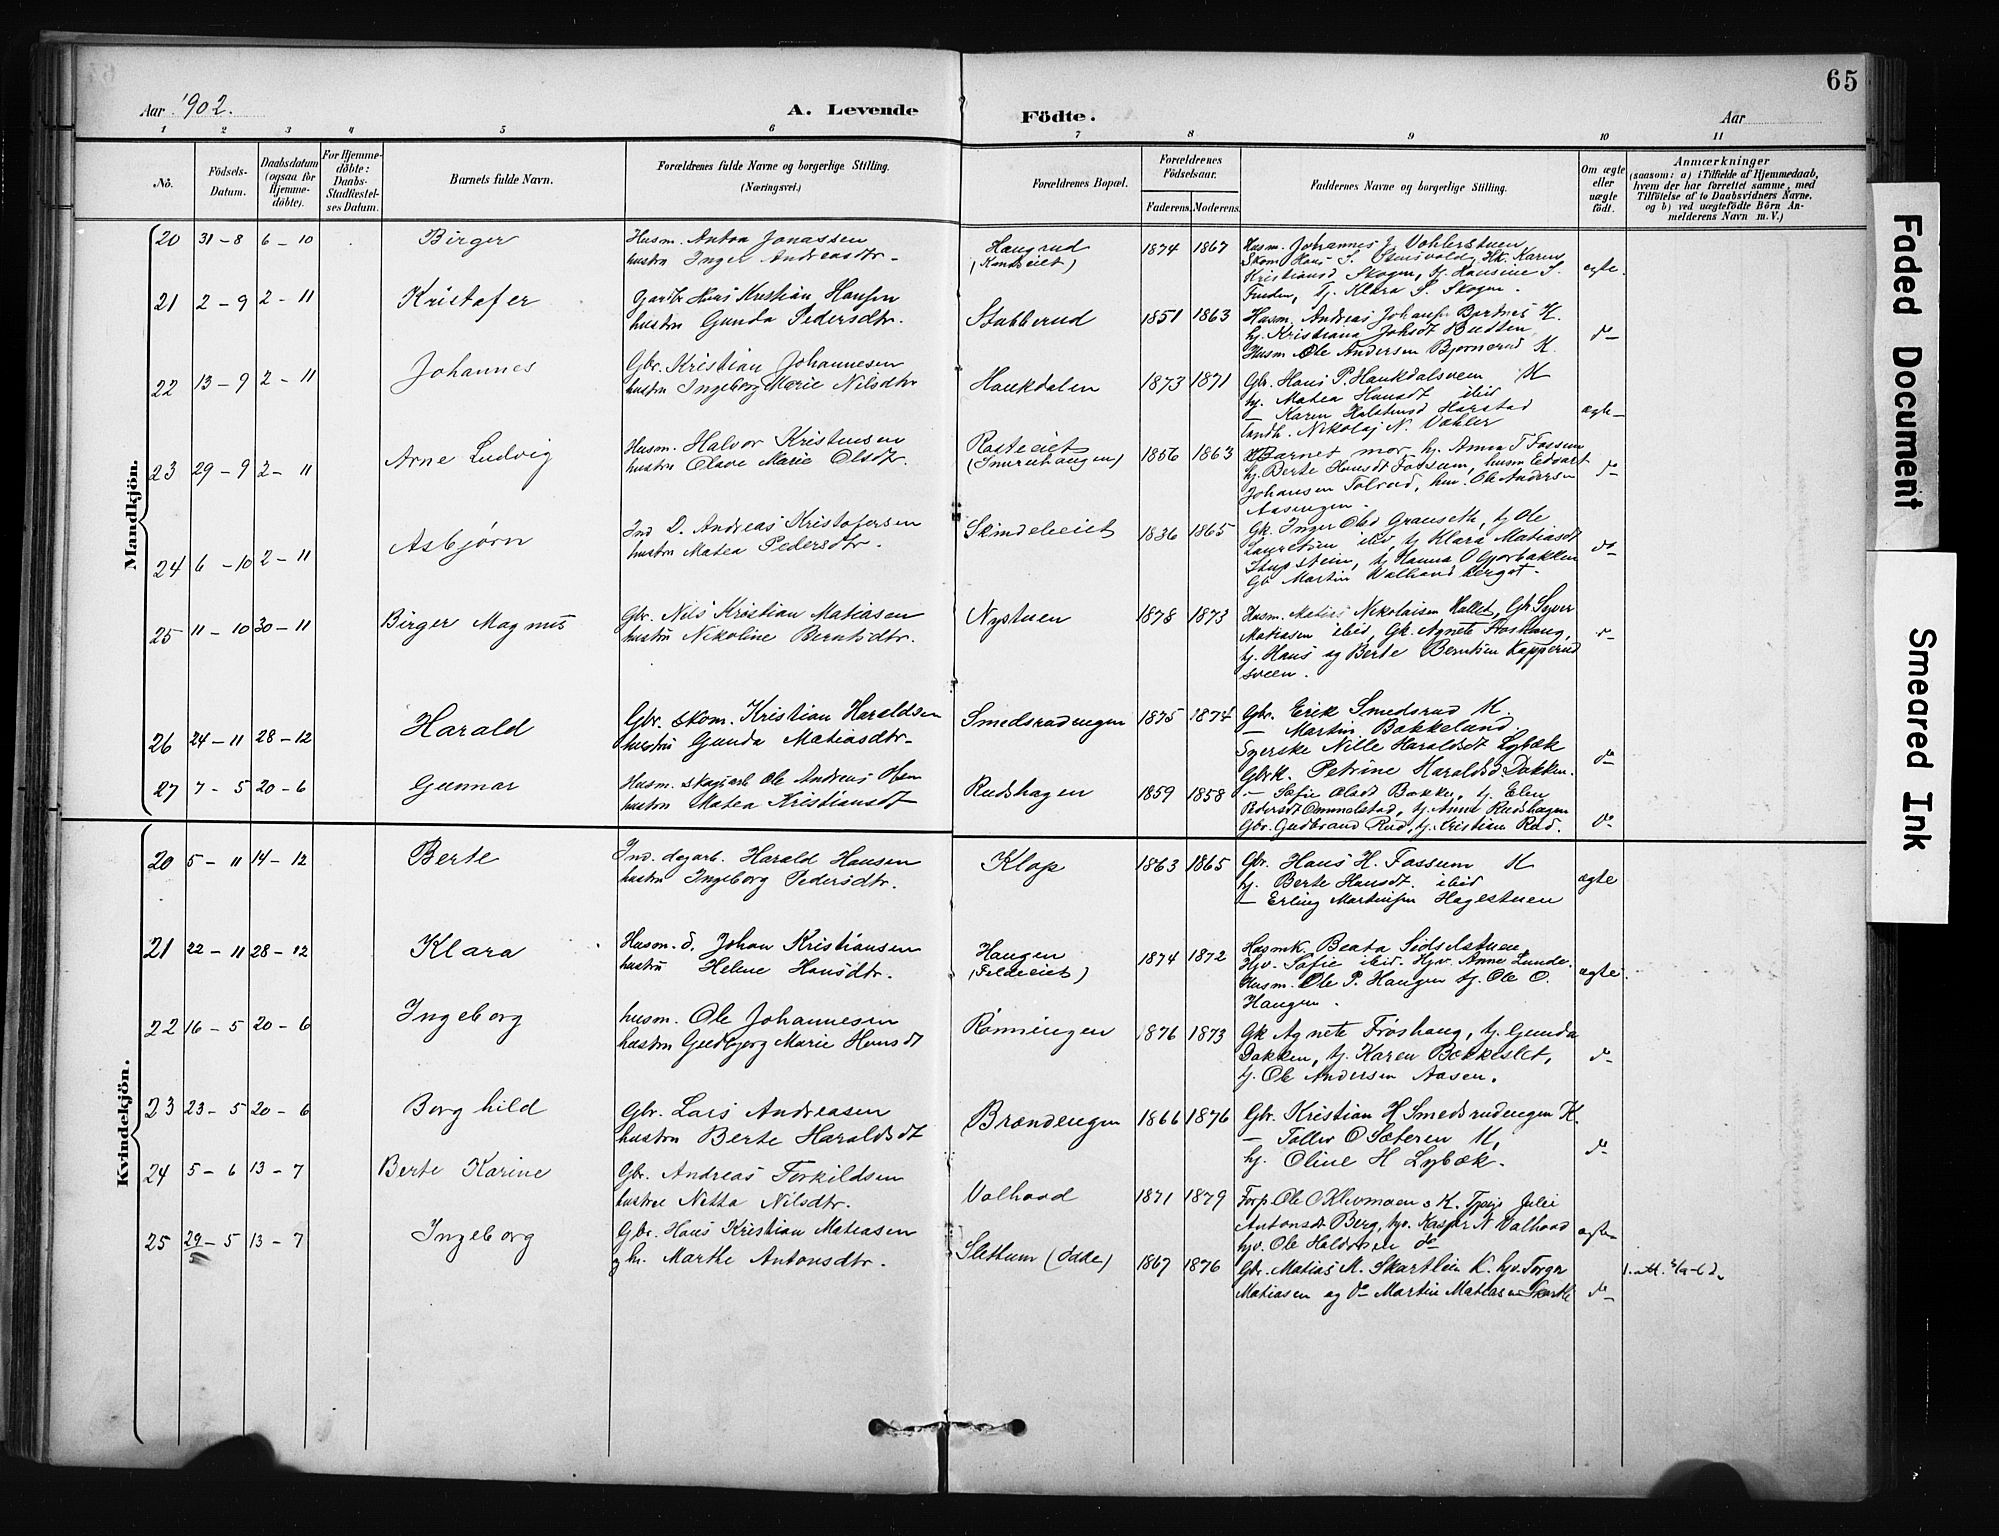 65
Aar 1902.
A. Levende
Födte.
Aar
1 2 3 4 5 6 7 8 9 10 11
Nô. Födsels-Datum. Daabsdatum (ogsaa for Hjemme-döbte). For Hjemme-döbte: Daabs-Stadfæstel-ses Datum. Barnets fulde Navn. Forældrenes fulde Navne og borgerlige Stilling. (Næringsvei.) Forældrenes Bopæl. Forældrenes Födselsaar. Faderens. Moderens. Faddernes Navne og borgerlige Stilling. Om ægte eller uægte födt. Anmærkninger (saasom: a) i Tilfælde af Hjemmedaab, hvem der har forrettet samme, med Tilföielse af to Daabsvidners Navne, og b) ved uægtefödte Börn An-melderens Navn m. V.)
Mandkjön.
20 31-8 6-10 Birger
Husm. Anton Jonassen
hustru Inger Andreasdtr.
Haugrud
1874 1867
Husm. Johannes J. Vohlerstuen
Skom Hans S. Hk. Karen
Kristiansd Skogen, tj. Hansine S.
Tj. Klara S. Skogen.
ægte.
21 2-9 2-11 Kristofer
Gardbr Hans Kristian Hansen
hustru Gunda Pedersdtr.
Stabberud
1851 1863
Husm. Andreas Johans. K.
hj. Kristiana
Husm Ole Andersen Bjørnerud K.
do
22 13-9 2-11 Johannes
Gbr. Kristian Johannesen
hustru Ingeborg Marie Nilsdtr
Haukdalen
1873 1871
Gb. Hans P. Haukdalsveen K
hj. Matea Hansdt ibid
— Karen Halstensd Harstad
landh. Nikolaj N. Vohler
ægte
23 29-9 2-11 Arne Ludvig
Husm. Halvor Kristensen
hustru Olave Marie Olsdtr.
1856 1863
Barnets mor hj. Anna T Fossum
hj. Berte Hansdt Fossum, husm Edvart
Johansen Tolrud, hm. Ole Andersen
Aasengen.
do
24 6-10 2-11 Asbjørn
Ind D. Andreas Kristofersen
hustru Matea Pedersdtr.
Skindeleiet
1836 1865
Gk. Inger Olsd Granseth, tj Ole
ibid, tj Klara Matiasdt
tj Hanna O
Gb Martin Valhaudberget.
do
25 11-10 30-11 Birger Magnus
Gbr. Nils Kristian Matiasen
hustru Nikoline Berntsdtr.
Nystuen
1878 1873
Husm. Matias Nikolaisen Hallet, Gb. Syver
Matiasen ibid, Gk. Agnete Frøshaug,
tj. Hans og Berte Berntsen Kapperud
sveen.
do
26 24-11 28-12 Harald
Gbr. skom. Kristian Haraldsen
hustru Gunda Matiasdtr.
Smedsrudengen
1875 1874
Gbr. Erik Smedsrud K.
— Martin Bakkeland
Syerske Nille Haraldsdt Lybæk
Gbrk. Petrine Haraldsd. Dokken.
do
27 7-5 20-6 Gunnar
Husm. skogarb Ole Andreas Olsen
hustru Matea Kristiansdt
Rudshagen
1859 1858
— Sofie Olsdt Bakke, tj. Elen
Pedersdt Ommelstad, tj. Anne Rudshagen
Gbr. Gudbrand Rud, tj. Kristian Rud.
do
Kvindekjön.
20 5-11 14-12 Berte
Ind. dagarb. Harald Hansen
hustru Ingeborg Pedersdtr.
Klop
1863 1865
Gbr. Hans H. Fossum K
hj. Berte Hansdt. ibid
— Erling Martinsen Hagestuen
ægte
21 22-11 28-12 Klara
Husm. d. Johan Kristiansen
hustru Helene Hansdtr.
Haugen
1874 1872
Husmk. Beata Sidselstuen
Hjv. Sofie ibid. Hjv. Anne Lunde.
Husm. Ole P. Haugen tj. Ole O.
Haugen.
ægte
22 16-5 20-6 Ingeborg
husm. Ole Johannesen
hustru Gudbjørg Marie Hansdt
Rønningen
1876 1873
Gk Agnete Frøshaug, tj. Gunda
Dokken, tj. Karen Bakkeslet,
tj. Ole Andersen Aasen.
do
23 23-5 20-6 Borghild
Gbr. Lars Andreasen
hustru Berte Haraldsdt
Brændengen
1866 1876
Gbr. Kristian H Smedsrudengen K.
— Tollev O Sæteren K,
hj. Oline H Lybæk.
do
24 5-6 13-7 Berte Karine
Gbr. Andreas Torkildsen
hustru Netta Nilsdtr.
Valhaud
1871 1879
Forp. Ole O K. Julie
Antonsdt Berg, hv. Kasper N Valhaud
hjv. Ole Haldorsen do
ægte
25 29-5 13-7 Ingeborg
Gbr. Hans Kristian Matiasen
g hu. Marthe Antonsdtr.
Slettum (Odde)
1867 1876
Gbr. Matias M. Skartlien K. hjv. Torger
Matiasen og do Martin Matiasen Skartli
do
1. att.
Faded Document
Smeared Ink